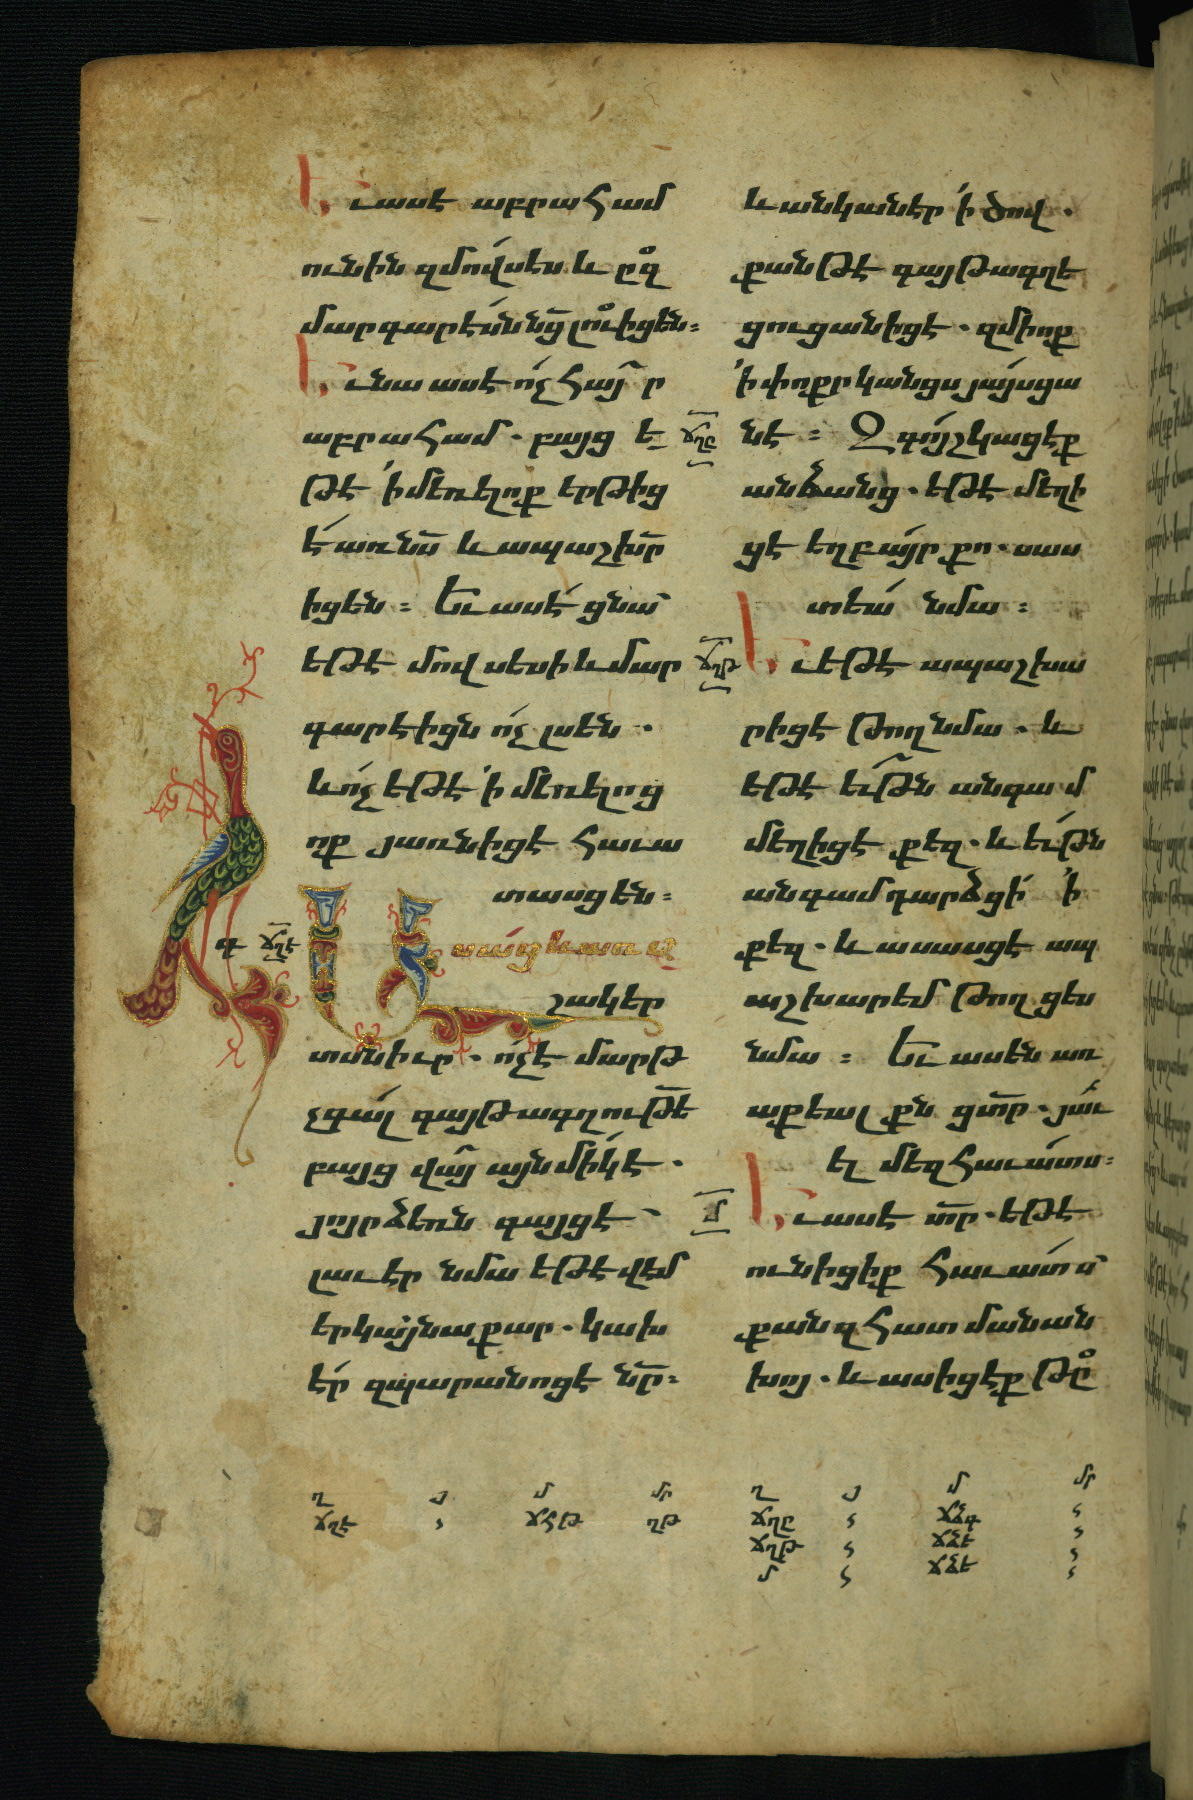 Եւ ասէ աբրահամ
ունին զմովսէս և ըզ
մարգարէսն նց լուիցեն։
Եւ նա ասէ ոչ հայր
աբրահամ. բայց ե
թէ ՚ի մեռելոց երթիցէ
է առ նս և ապաշխր
իցեն։ Եւ ասէ ցնա
եթէ մովսեսի և մար
գարէիցն ոչ լսեն.
և ոչ եթէ ՚ի մեռելոց
ոք յառնիցէ հաւա
տասցեն։
գ ճղէ Ասաց և առ ա
շակեր
տսն իւր. ոչ է մարթ
չգալ գայթագղութե
բայց վայ այնմիկ է.
յոյր ձեռն գայցէ
լաւ էր նմա եթէ վէմ
երկայնաքար. կախ
էր զպարանոցէ նր։
և անկանէր ՚ի ծով.
քան թէ գայթագղե
ցուցանիցէ. զմի ոք
՚ի փոքրկանցս յայսցա
ճղը նէ։ Զգոյշ կացէք
անձանց. եթէ մեղի
ցէ եղբայր քո. սաս
տեա նմա։
ճղթ Եւ եթէ ապաշխա
րիցէ թող նմա. և
եթէ եւթն անգամ
մեղիցէ քեզ. և եւթն
անգամ դարձցի ՚ի
քեզ. և ասասցէ ապ
աշխարեմ թող ցես
նմա։ Եւ ասեն առ
աքեալ քն ցտր. յաւ
ել մեզ հաւատս։
մ Եւ ասէ տր. եթէ
ունիցիք հաւատս
քան զհատ մանան
խոյ. և ասիցէք թը
ղ յ մ մր
ճղէ ճհթ ղթ
ղ յ մ մր
ճղը ճձգ
ճղթ ճձե
մ ճձէ